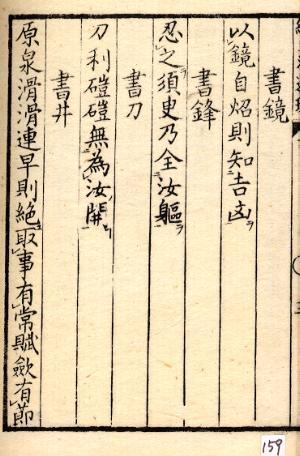 書鏡
以鏡自炤則知吉凶
書鋒
忍之須臾乃全汝軀
書刀
刀利磑磑無為汝開
書井
原泉滑滑連旱則絕取事有常賦斂有節
159